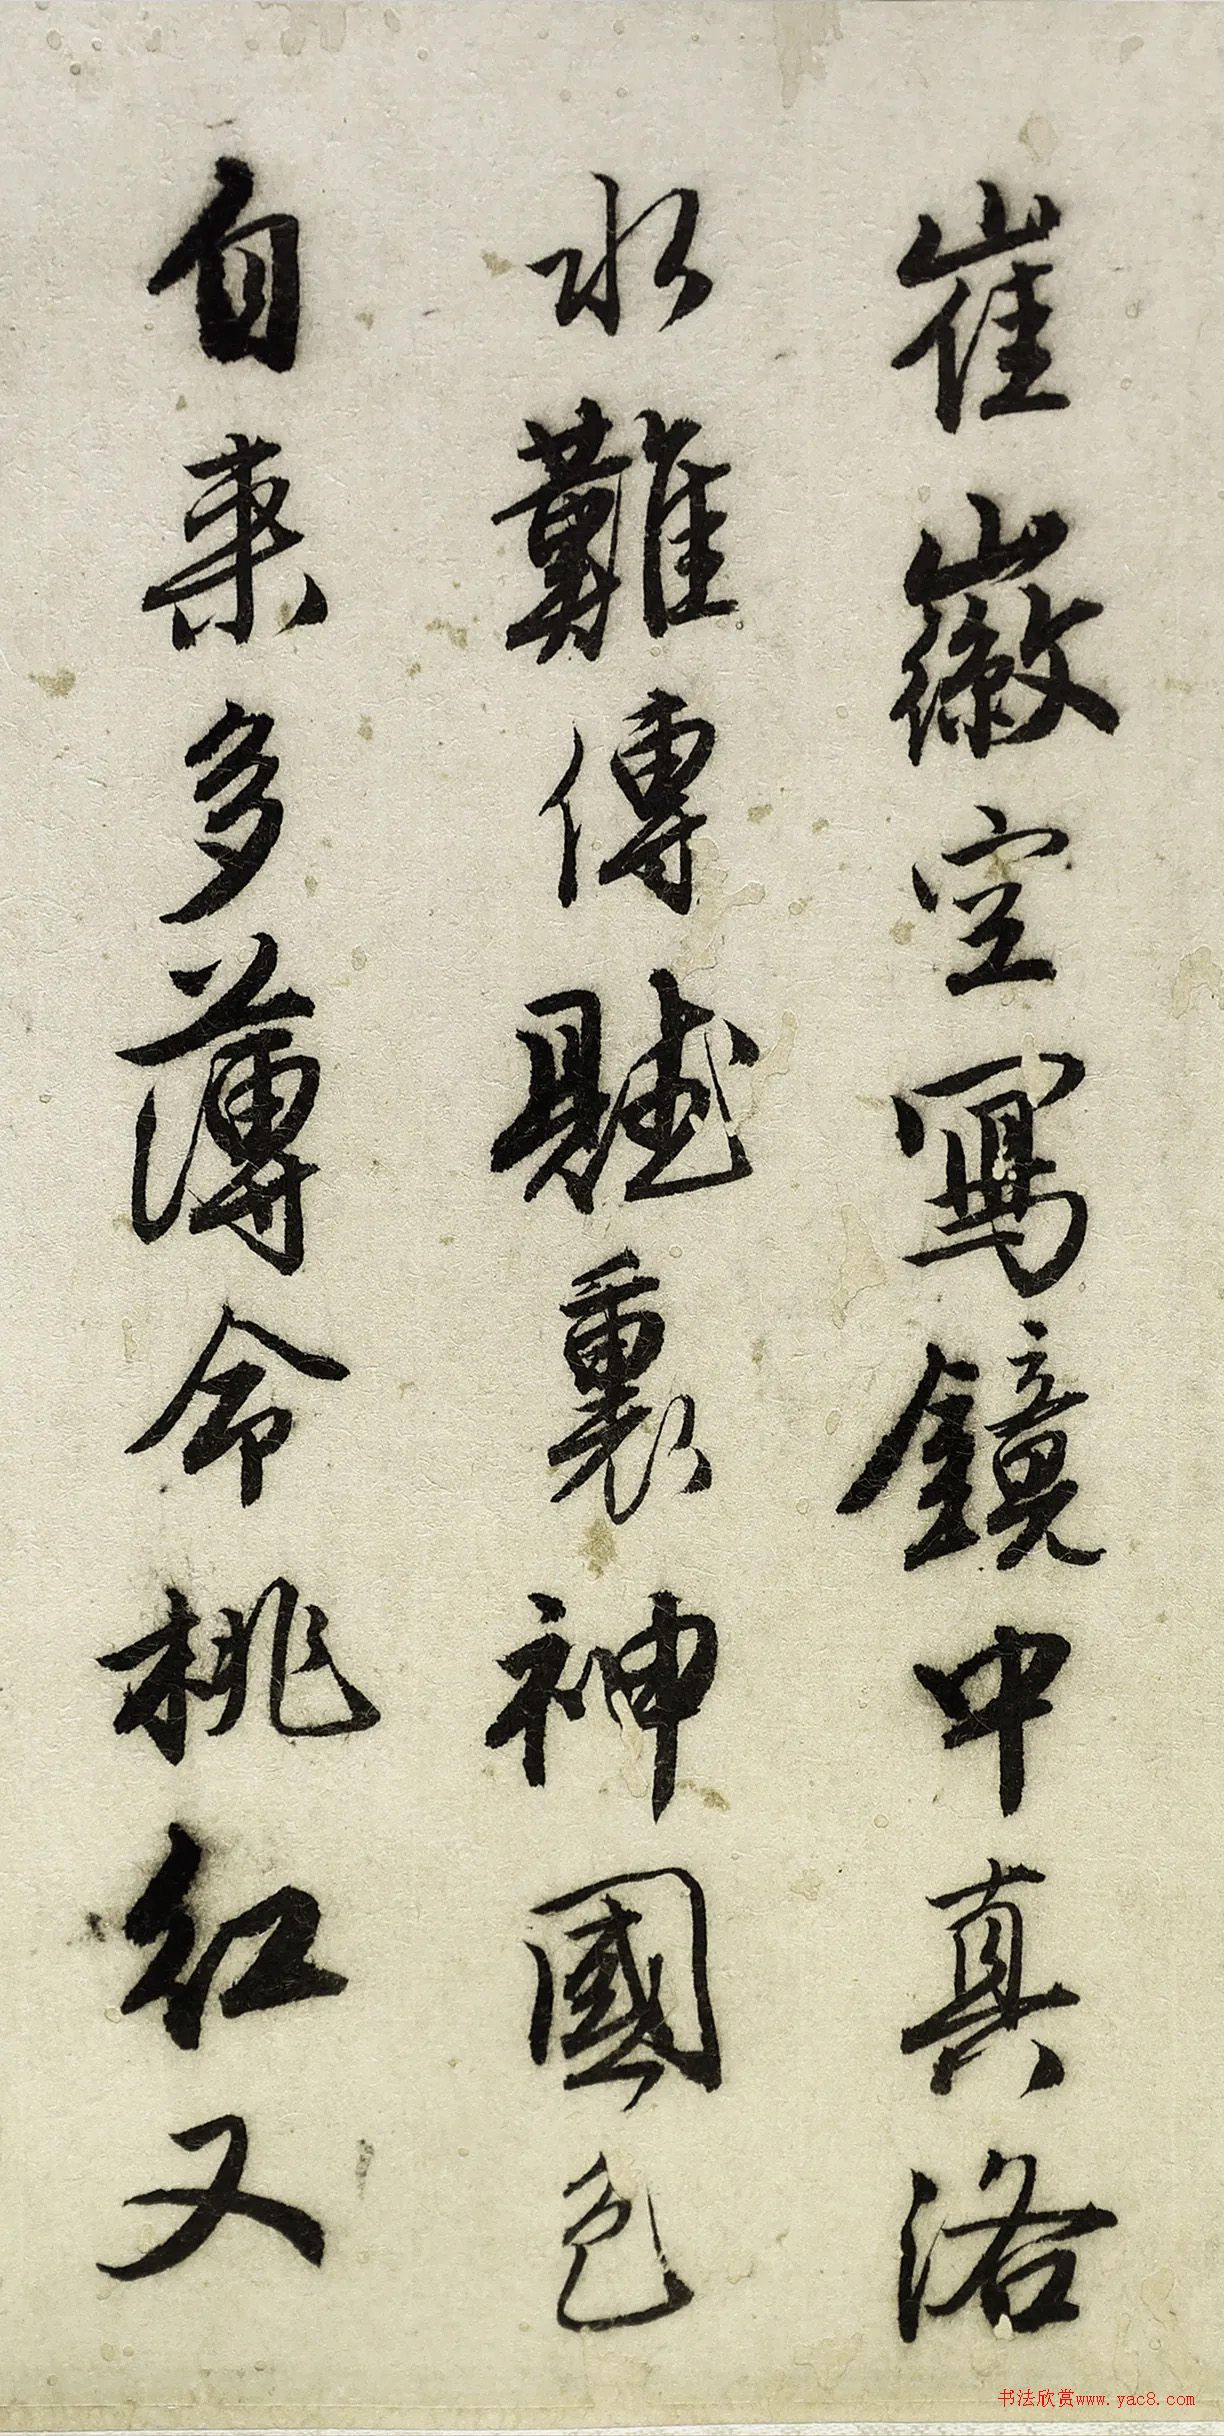 崔徽空寫鏡中真洛
水難傳賦裏神國色
自来多薄命桃紅又
书法欣赏www.yac8.com